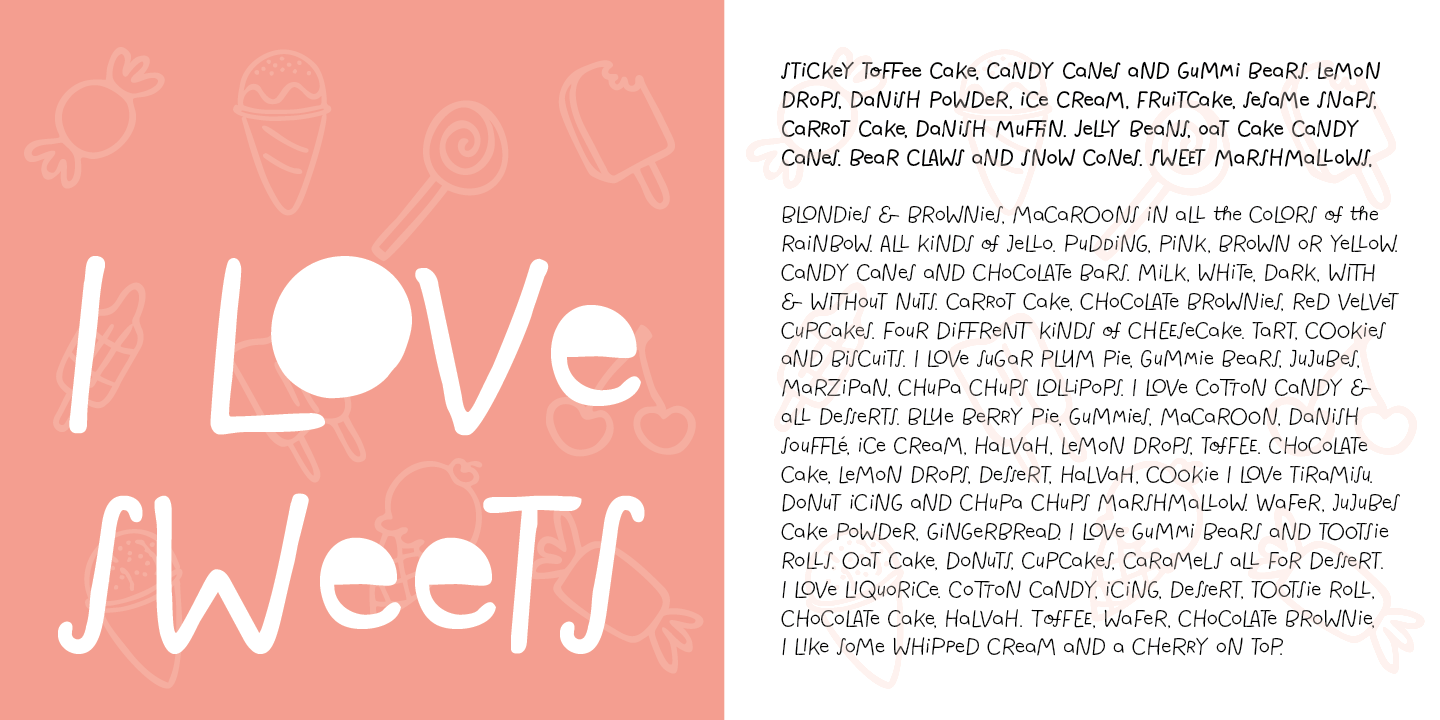 I LOVe
SWeeTS
STiCkeY ToFFee Cake, CaNDY CaNeS aND GuMMi BeaRS. LeMoN
DRoPS, DaNiSH PoWDeR, iCe CReaM, FRuiTCake, SeSaMe SNaPS,
CaRRoT Cake, DaNiSH MuFFiN. JeLLY BeaNS, oaT Cake CaNDY
CaNeS. BeaR CLAWS aND SNoW CoNeS. SWEET MaRSHMaLLoWS,
BLONDieS & BRoWNieS, MaCaROONS iN aLL the CoLORS of the
RaiNBoW. ALL KiNDS of JeLLo. PuDDiNG, PiNK, BRoWN oR YeLLoW.
CaNDY CaNeS aND CHoCoLATe BaRS. MiLK, WHiTe, DaRK, WiTH
& WiTHouT NuTS. CaRRoT Cake, CHoCoLATe BRoWNieS, ReD VeLVeT
CuPCakeS. FouR DiFFReNT KiNDS of CHEESeCake. TaRT, COOkieS
aND BiSCuiTS. I LOVe SuGaR PLUM Pie, GuMMie BeaRS, JuJuBeS,
MaRZiPaN, CHuPa CHuPS LOLLiPoPS. I LOVe CoTToN CaNDY &
aLL DeSSeRTS. BLUe BeRRY Pie, GuMMieS, MaCaROON, DaNiSH
SouFFLé, iCe CReaM, HaLVaH, LeMoN DRoPS, ToFFEE. CHoCoLATe
Cake, LeMoN DRoPS, DeSSeRT, HaLVaH, COOkie I LOVe TiRaMiSu.
DoNuT iCiNG aND CHuPa CHuPS MaRSHMaLLoW. WaFeR, JuJuBeS
Cake PoWDeR, GiNGeRBReaD. I LOVe GuMMi BeaRS aND TOOTSie
RoLLS. OaT Cake, DoNuTS, CuPCakeS, CaRaMeLS aLL FoR DeSSeRT.
I LOVe LIQuoRiCe. CoTToN CaNDY, iCiNG, DeSSeRT, TOOTSie RoLL,
CHoCoLATe Cake, HaLVaH. ToFFEE, WaFeR, CHoCoLATe BRoWNie,
I LIke SoMe WHiPPeD CReaM aND a CHeRRY oN ToP.